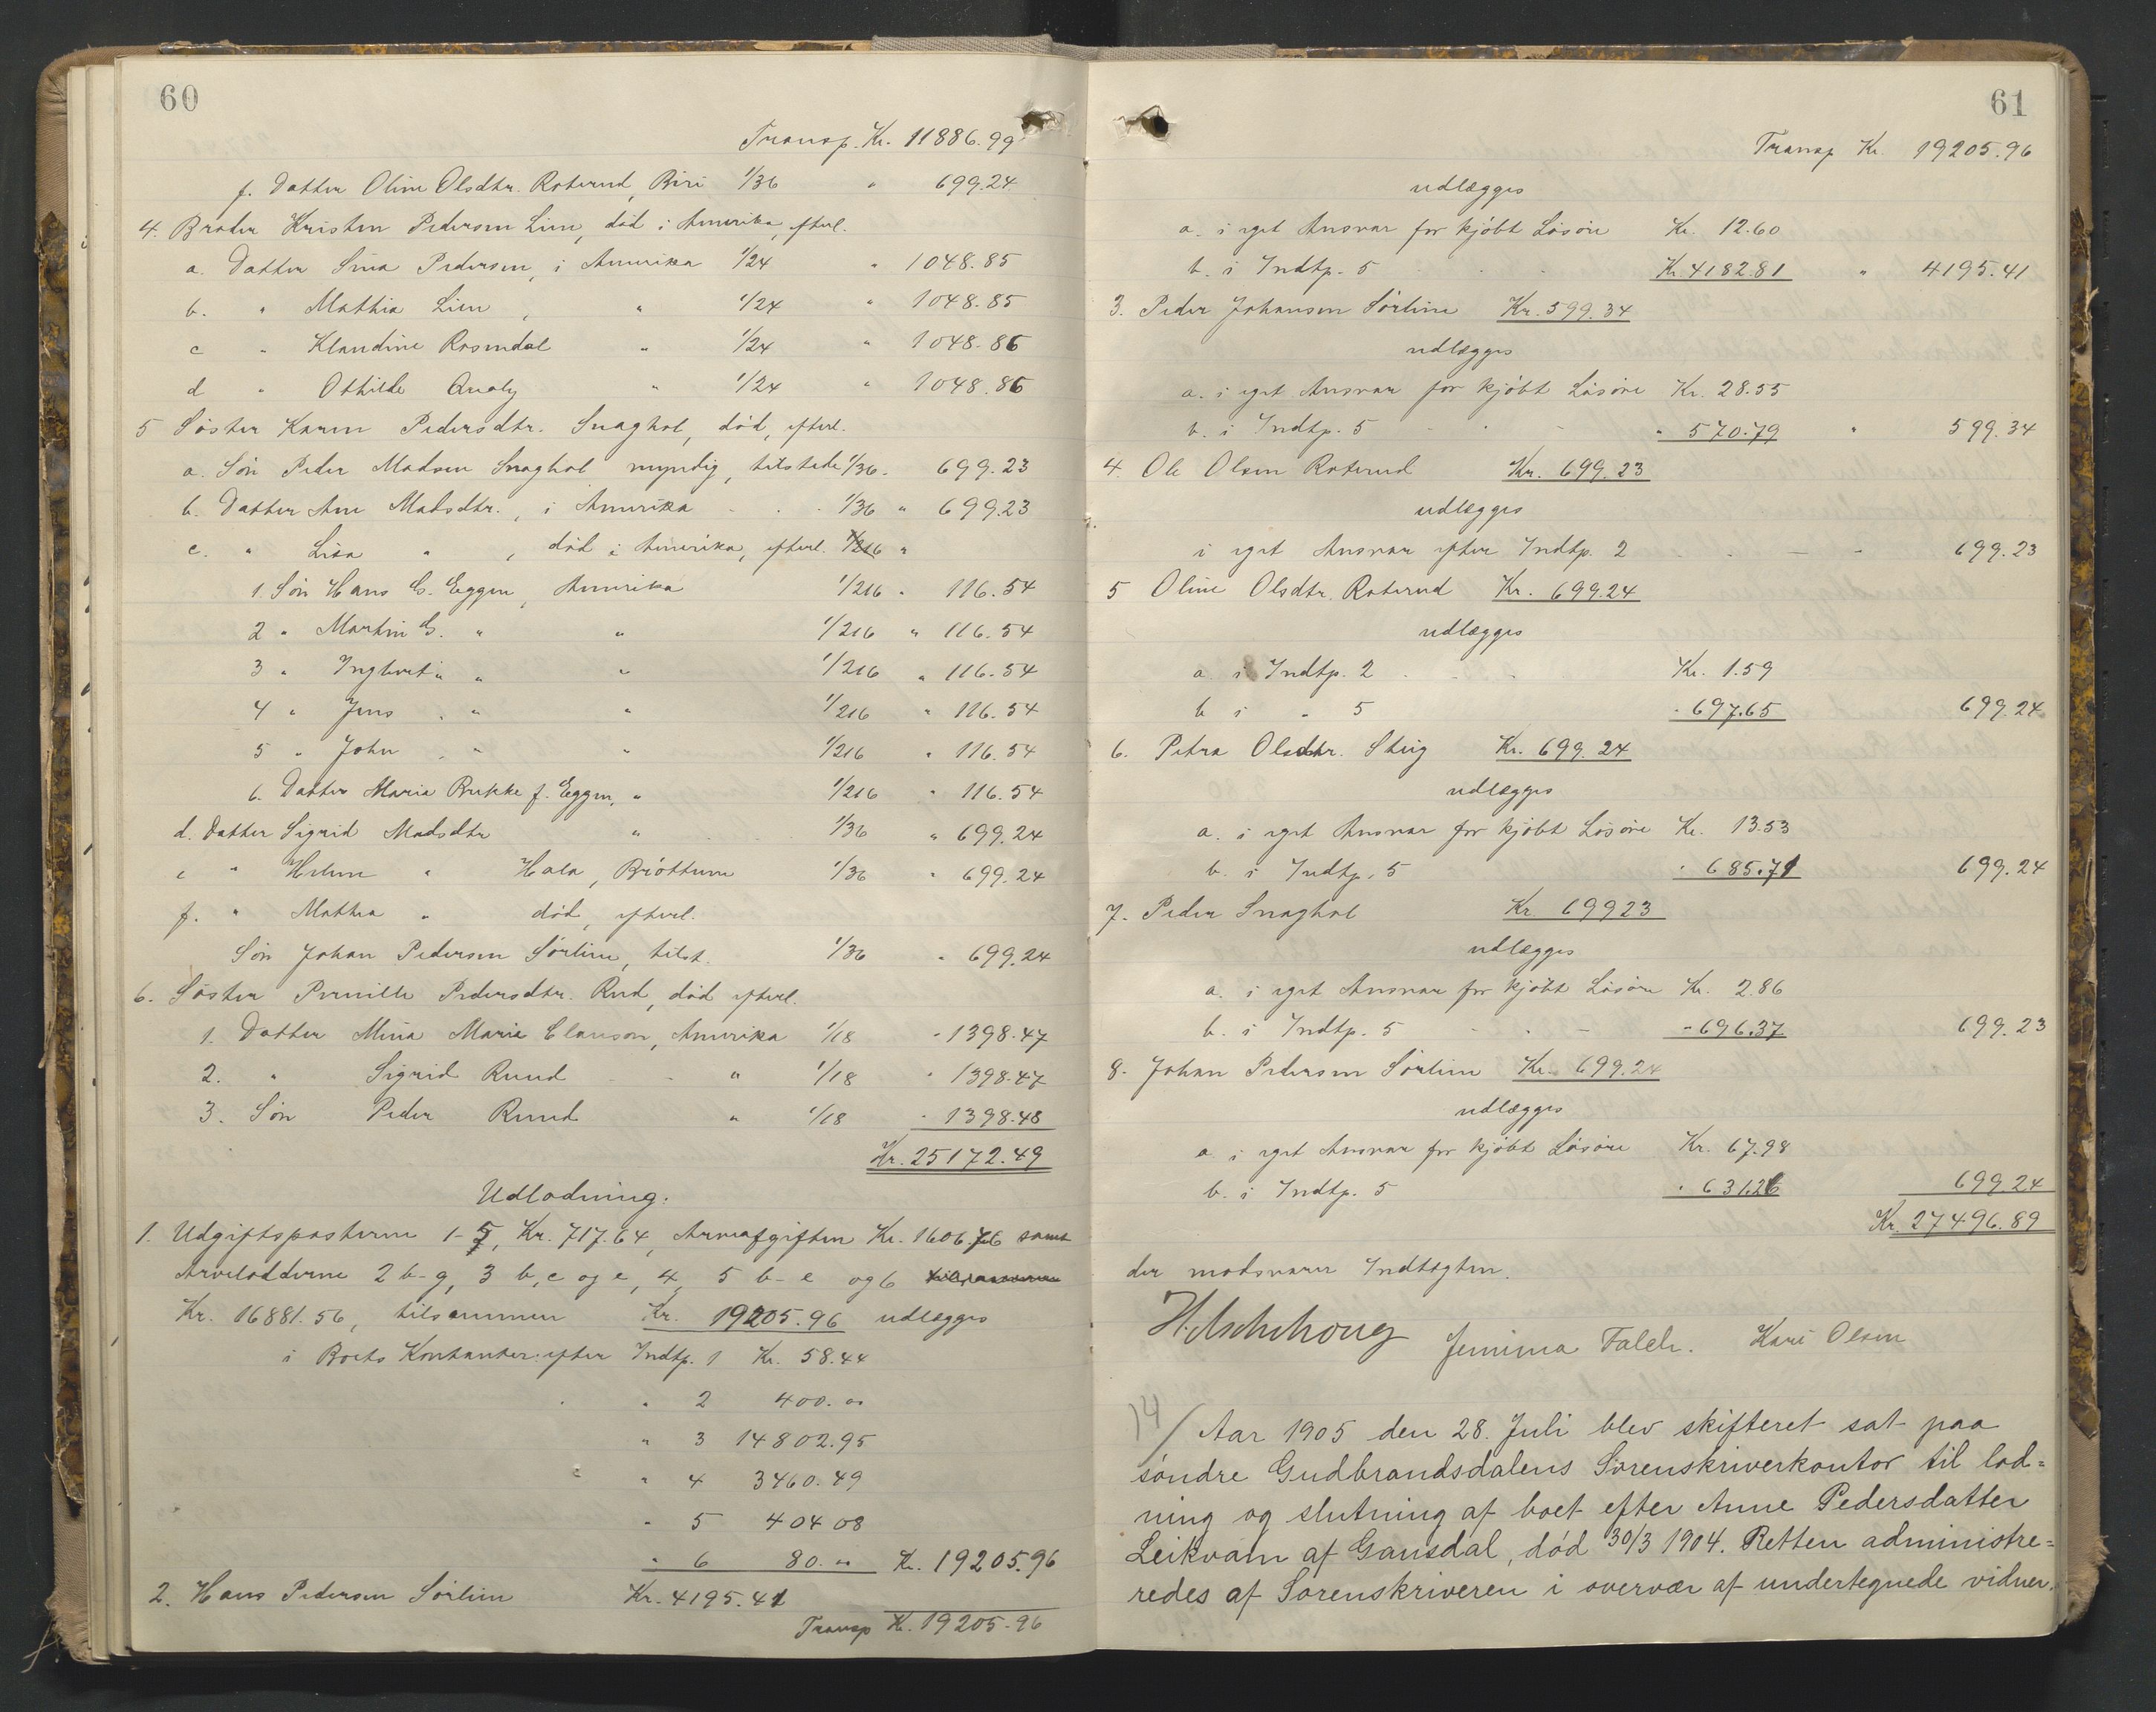 60
Transp. Kr. 11886.99
f. Datter Oline Olsdtr. Roterud, Biri 1/36 " 699.24
4. Broder Kristen Pedersen Lien, død i Amerika, efterl.
a. Datter Sina Pedersen, i Amerika 1/24 " 1048.85
b. " Mathia Lien, " 1/24 " 1048.85
c " Klaudine Rosendal " 1/24 " 1048.86
d " Othilde Qualy " 1/24 " 1048.86
5 Søster Karen Pedersdtr. Snaghol, død, efterl.
a. Søn Peder Madsen Snaghol myndig, tilstede 1/36 - 699.23
b. Datter Ane Madsdtr., i Amerika 1/36 " 699.23
c. " Lisa " , død i Amerika, efterl. 1/216 "
1. Søn Hans G. Eggen, Amerika 1/216 " 116.54
2 " Martin G. " " 1/216 " 116.54
3 " Ingbert " " " 1/216 " 116.54
4 " Jens " " " 1/216 " 116.54
5 " John " " " 1/216 " 116.54
6. Datter Maria Bukke f. Eggen, " 1/216 " 116.54
d. Datter Sigrid Madsdtr " 1/36 " 699.24
e " Helene " Hala, Brøttum 1/36 " 699.24
f. " Mathea " død, efterl.
Søn Johan Pedersen Sørlien, tilst. 1/36 " 699.24
6. Søster Pernille Pedersdtr. Rud, død efterl.
1. Datter Mina Marie Clauson, Amerika 1/18 " 1398.47
2. " Sigrid Ruud " 1/18 " 1398.47
3. Søn Peder Ruud " 1/18 " 1398.48
Kr. 25172.49
Udlodning.
1. Udgiftsposterne 1-5, Kr. 717.64, Arveafgiften Kr. 1606.76 samt
Arvelodderne 2 b-g, 3 b, c og e, 4, 5 b-e og 6
Kr. 16881.56, tilsammen Kr. 19205.96 udlægges
i Boets Kontanter efter Indtp. 1 Kr. 58.44
" 2 400.00
" 3 14802.95
" " 4 3460.49
" 5 404 08
" 6 80.00 Kr. 19205.96
2. Hans Pedersen Sørlien Kr. 4195.41
Transp Kr. 19205.96
61
Transp Kr. 19205.96
udlægges
a. i eget Ansvar for kjøbt Løsøre Kr. 12.60
b. i Indtp. 5 Kr. 4182.81 " 4195.41
3. Peder Johansen Sørlien Kr. 599.34
udlægges
a. i eget Ansvar for kjøbt Løsøre Kr. 28.55
b. i Indtp. 5 " 570.79 " 599.34
4. Ole Olsen Roterud Kr. 699.23
udlægges
i eget Ansvar efter Indtp. 2 699.23
5 Oline Olsdtr. Roterud Kr. 699.24
udlægges
a. i Indtp. 2 Kr. 1.59
b i " 5 " 697.65 699.24
6. Petra Olsdtr. Stug Kr. 699.24
udlægges
a. i eget Ansvar for kjøbt Løsøre Kr. 13.53
b. i Indtp. 5 " 685.71 699.24
7. Peder Snaghol Kr 699 23
udlægges
a. i eget Ansvar for kjøbt Løsøre Kr. 2.86
b. i Indtp. 5 - 696.37 699.23
8. Johan Pedersen Sørlien Kr. 699.24
udlægges
a. i eget Ansvar for kjøbt Løsøre Kr. 67.98
b. i Indtp. 5 " 631.26 699.24
Kr. 27496.89
der modsvarer Indtægten.
H. Aschehoug Jemima Falch. Kari Olsen
14/ Aar 1905 den 28. Juli blev skifteret sat paa
søndre Gudbrandsdalens Sorenskriverkontor til lod=
ning og slutning af boet efter Anne Pedersdatter
Leikvam af Gausdal, død 30/3 1904. Retten administre=
redes af Sorenskriveren i overvær af undertegnede vidner.